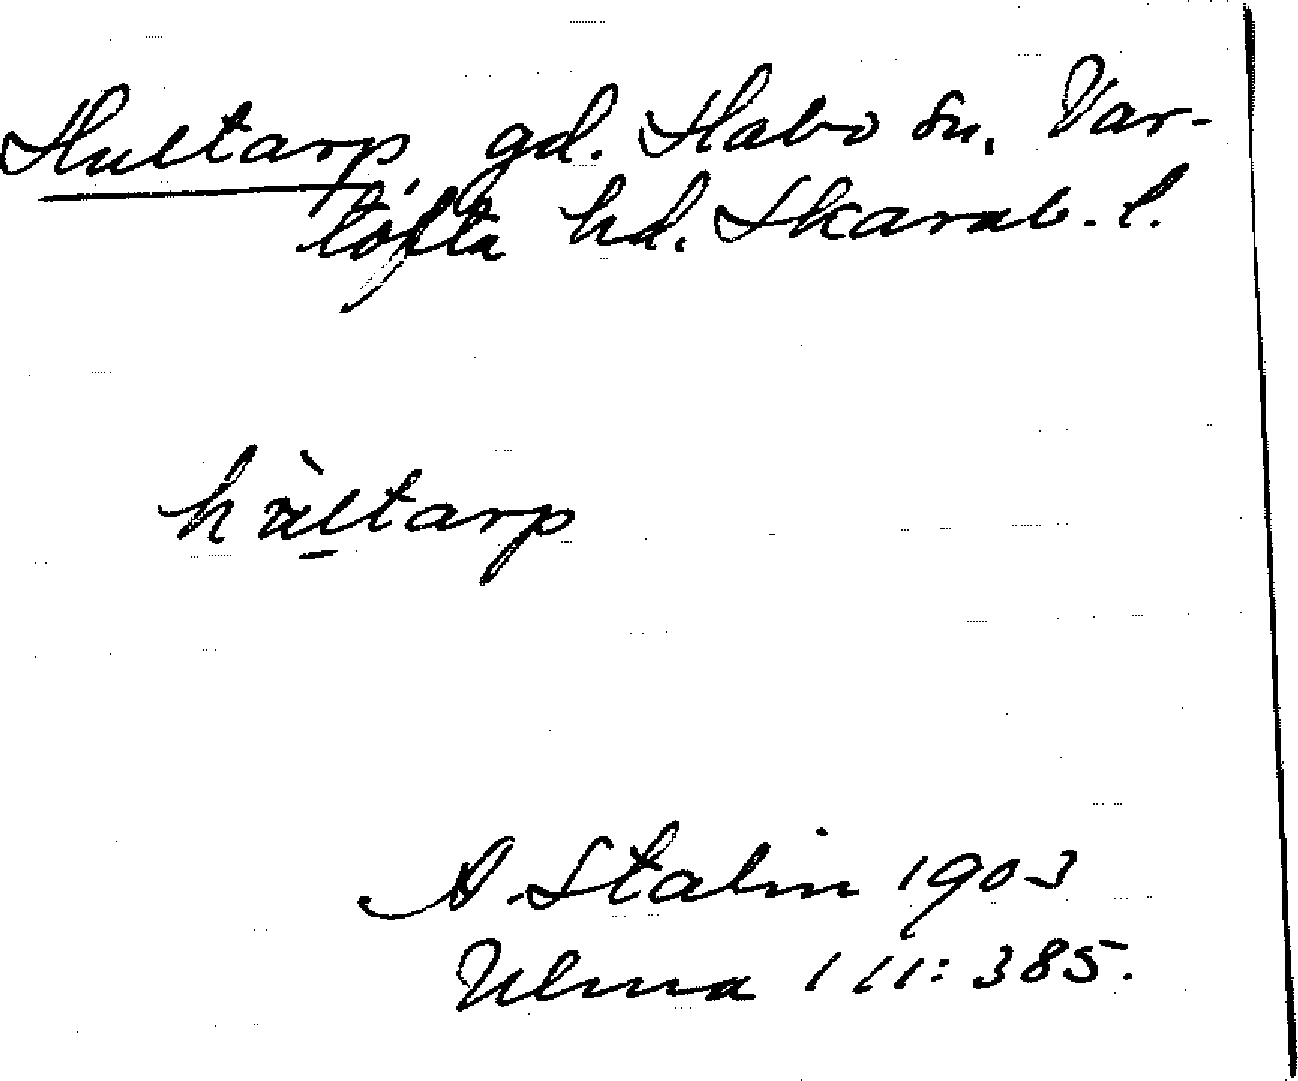 Hultarp, gd. Habo sn, Var-
tofta hd. Skarab. l.
hæ̀ltarp
A. Stalin 1903
Ulma 111:385.